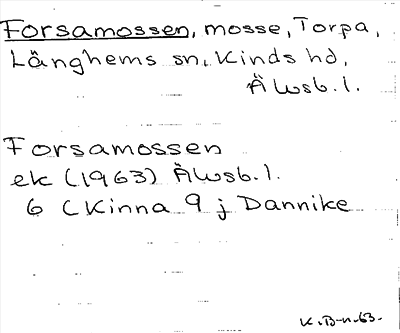 Forsamossen, mosse, Torpa,
Länghems sn, Kinds hd,
Älvsb. l.
Forsamossen
ek (1963) Älvsb. l.
6 C Kinna 9 j Dannike
K. B-n. 63.